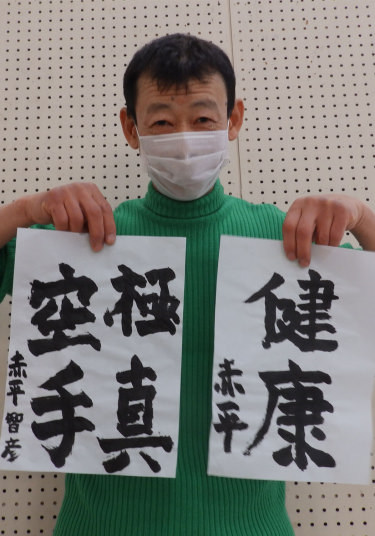 極真
空手
赤平智彦
健康
赤平